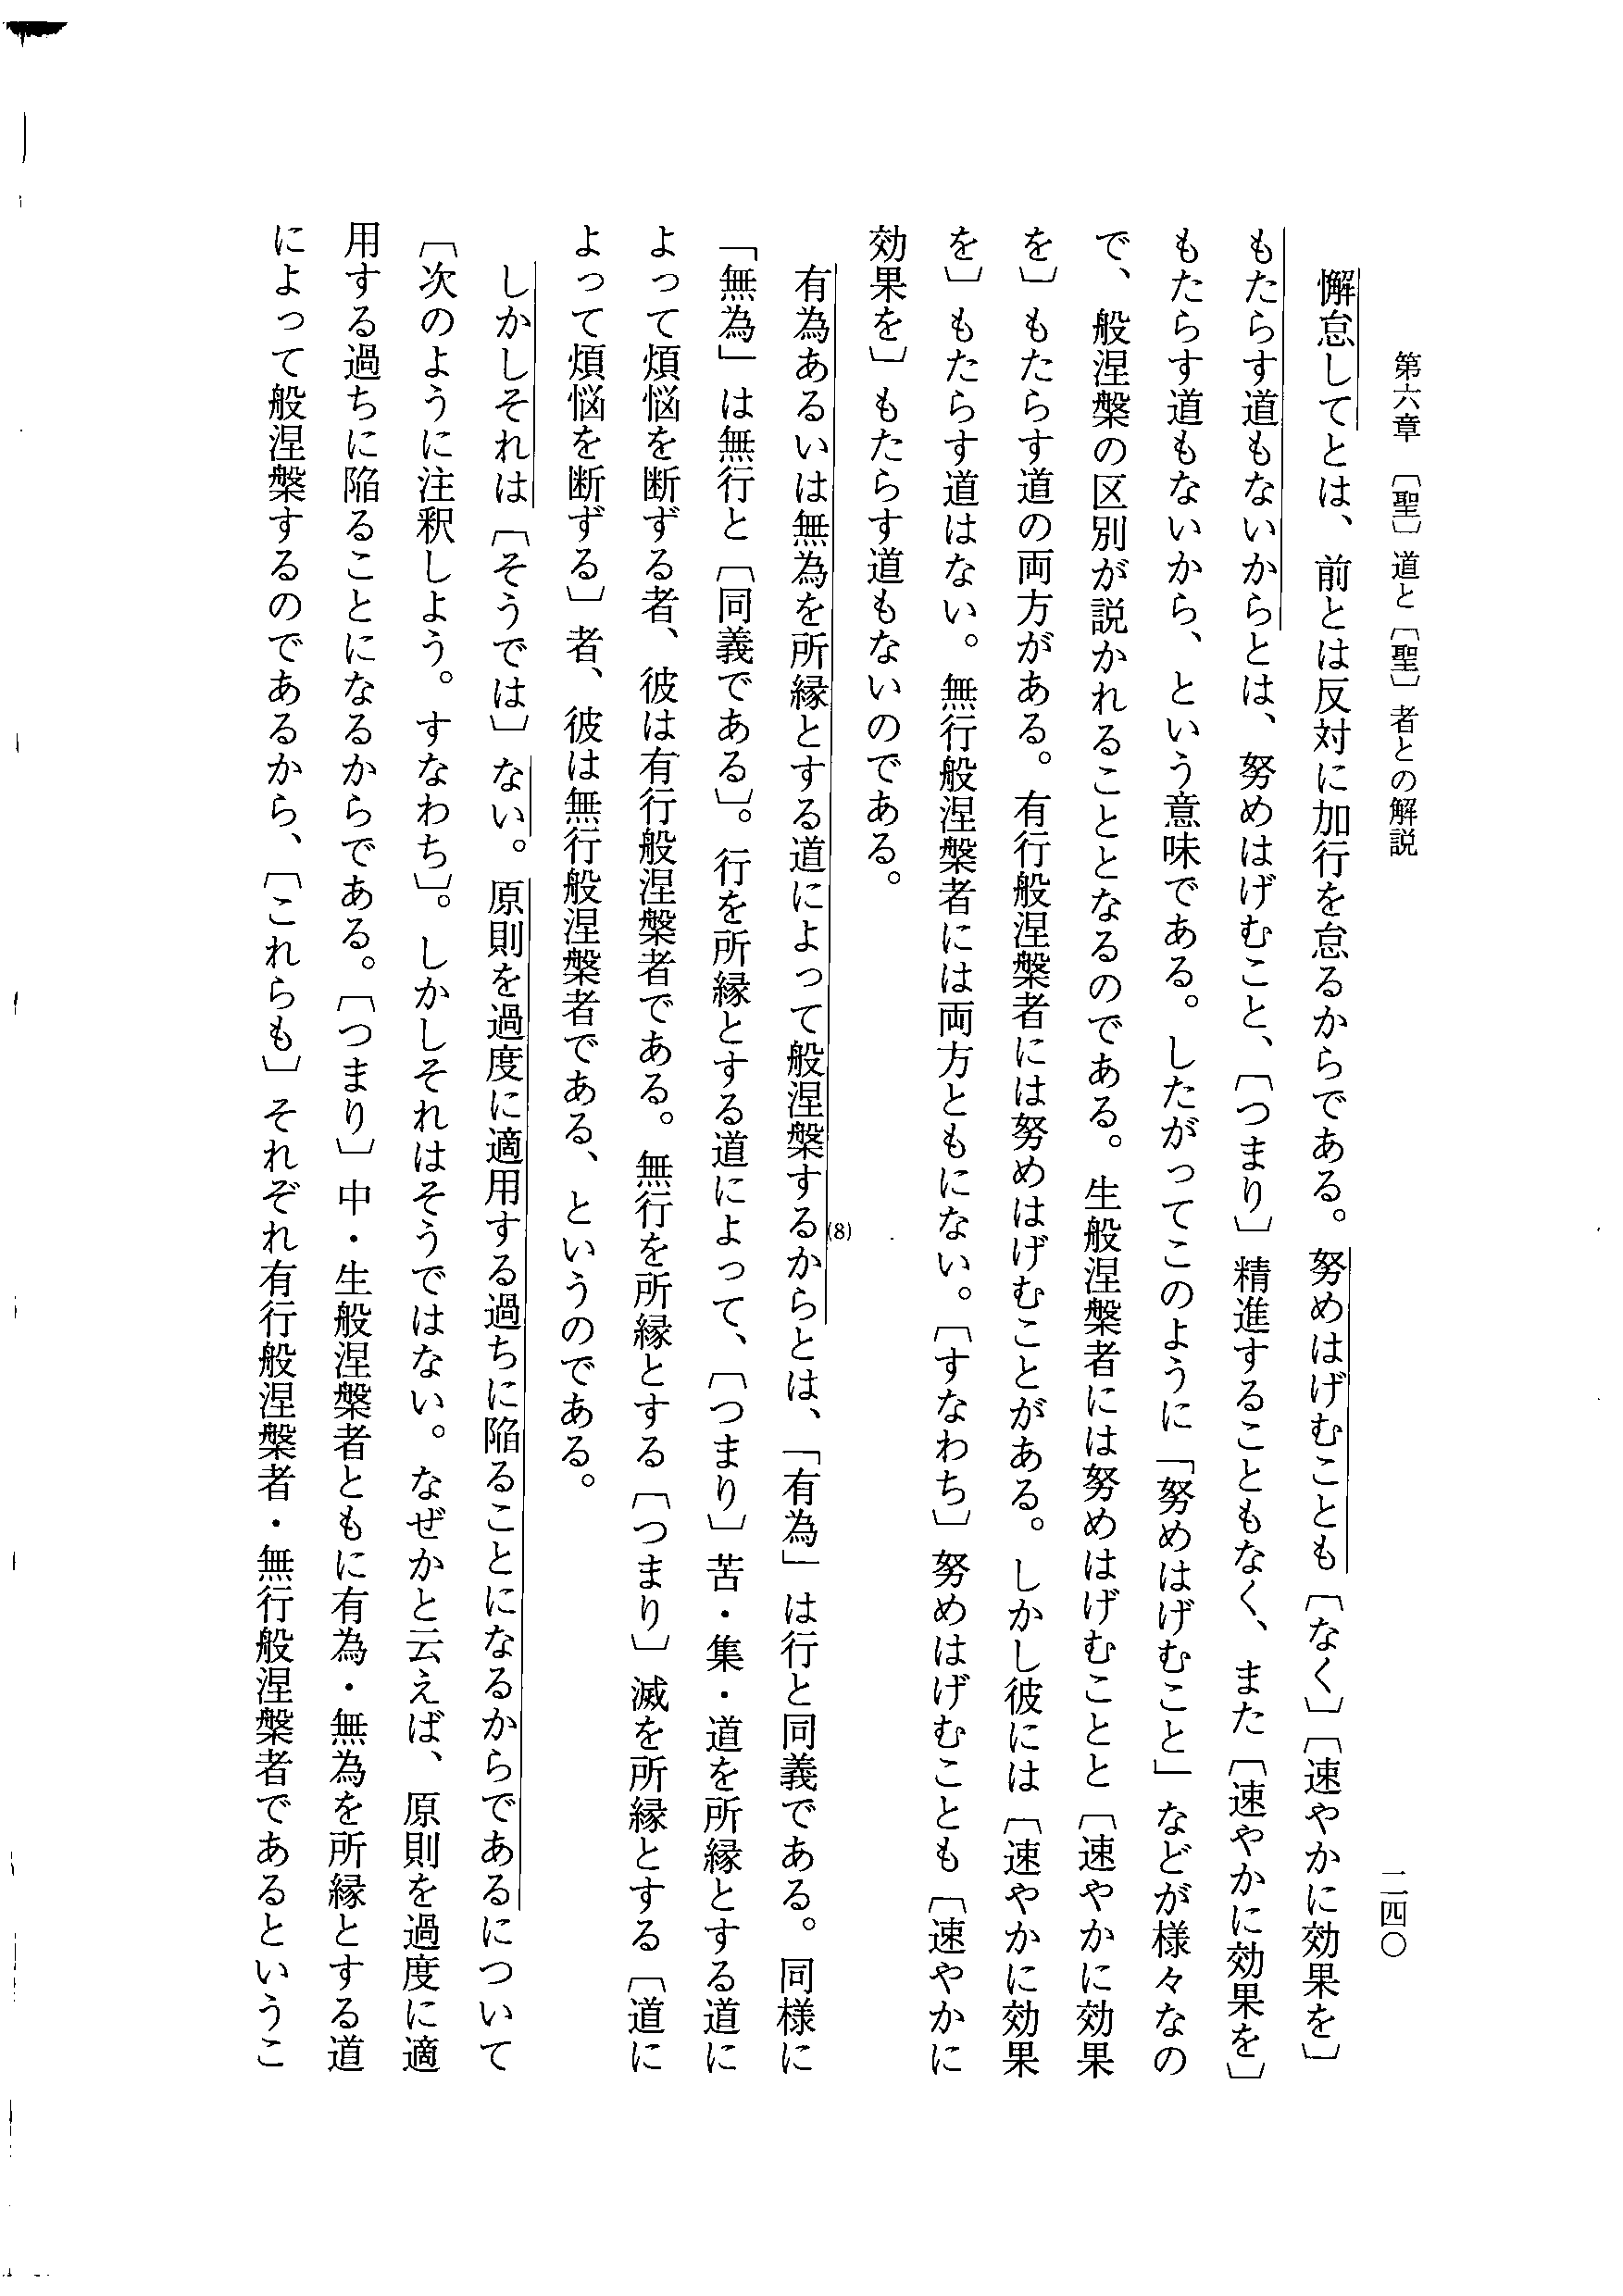 第六章　〔聖〕道と〔聖〕者との解説
二四〇
懈怠してとは、前とは反対に加行を怠るからである。努めはげむことも〔なく〕〔速やかに効果を〕
もたらす道もないからとは、努めはげむこと、〔つまり〕精進することもなく、また〔速やかに効果を〕
もたらす道もないから、という意味である。したがってこのように「努めはげむこと」などが様々なの
で、般涅槃の区別が説かれることとなるのである。生般涅槃者には努めはげむことと〔速やかに効果
を〕もたらす道の両方がある。有行般涅槃者には努めはげむことがある。しかし彼には〔速やかに効果
を〕もたらす道はない。無行般涅槃者には両方ともにない。〔すなわち〕努めはげむことも〔速やかに
効果を〕もたらす道もないのである。
有為あるいは無為を所縁とする道によって般涅槃するから(8)とは、「有為」は行と同義である。同様に
「無為」は無行と〔同義である〕。行を所縁とする道によって、〔つまり〕苦・集・道を所縁とする道に
よって煩悩を断ずる者、彼は有行般涅槃者である。無行を所縁とする〔つまり〕滅を所縁とする〔道に
よって煩悩を断ずる〕者、彼は無行般涅槃者である、というのである。
しかしそれは〔そうでは〕ない。原則を過度に適用する過ちに陥ることになるからであるについて
〔次のように注釈しよう。すなわち〕。しかしそれはそうではない。なぜかと云えば、原則を過度に適
用する過ちに陥ることになるからである。〔つまり〕中・生般涅槃者ともに有為・無為を所縁とする道
によって般涅槃するのであるから、〔これらも〕それぞれ有行般涅槃者・無行般涅槃者であるというこ